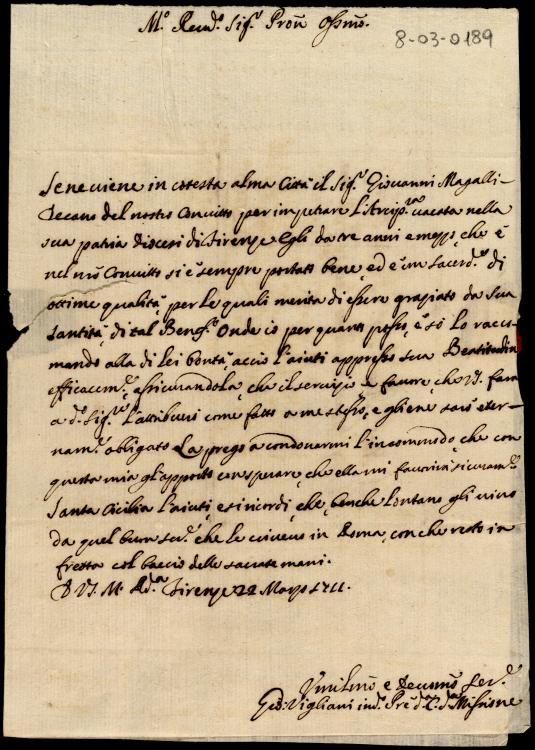 M.º Rev.do Sig.r Pron Ossmo.
8-03-0189
Se ne viene in cotesta alma Città il Sig.r Giovanni Magalli
Decano del nostro Convitto per impetrare l'Arcip.to vacato nella
sua patria Diocesi di Firenze. Egli da tre anni e mezzo, che è
nel nro Convitto si è sempre portato bene, ed è un sacerd.e di
ottime qualità, per le quali merita di essere graziato da Sua
Santità di tal Benef.o Onde io per quanto posso, e só lo racco-
mando alla di lei bontà, acciò l'aiuti appresso sua Beatitudin
efficacem.e, assicurandola, che il servizio e favore, che V.S. farà
a d.o Sig.re l'attribuirò come fatto a me stesso, e gliene sarò eter-
nam.e obligato. La prego a condonarmi l'incommodo, che con
questa mia gl'apporto con sperare, che ella mi favorirà sicuram.e
Santa Cicilia l'aiuti, e si ricordi, che, benche lontano gli vivo
da quel buon ser.e che le vivevo in Roma, con che resto in
fretta col baccio delle sacrate mani.
D V.S. M. R.da Firenze 22 Marzo 1711.
Umilmo e Devotmo Ser.e
Vigliani ind. Pre d. C. d.a Missione